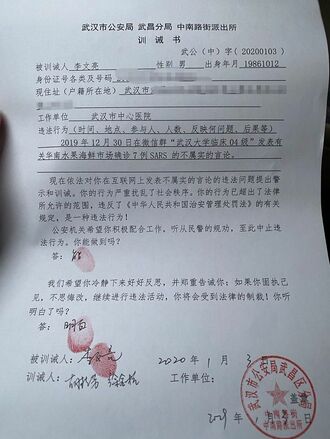 武汉市公安局 武昌分局 中南路街派出所
训 诫 书
武公(中)字(20200103)
被训诫人 李文亮 性别 男 出身年月 19861012
身份证号各类及号码
现住址(户籍所在地) 武汉市
工作单位 武汉市中心医院
违法行为(时间、地点、参与人、人数、反映何问题、后果等)
2019年12月30日在微信群“武汉大学临床04级”发表有
关华南水果海鲜市场确诊7例SARS的不属实的言论。
现在依法对你在互联网上发表不属实的言论的违法问题提出警
示和训诫。你的行为严重扰乱了社会秩序。你的行为已超出了法律
所允许的范围,违反了《中华人民共和国治安管理处罚法》的有
关规定,是一种违法行为!
公安机关希望你积极配合工作,听从民警的规劝,至此中止违
法行为。你能做到吗?
答: 能
我们希望你冷静下来好好反思,并郑重告诫你:如果你固执己
见,不思悔改,继续进行违法活动,你将会受到法律的制裁!你听
明白了吗?
答: 明白
被训诫人: 李文亮 2020年1月3日
训诫人: 工作单位:
盖章
武汉市公安局武昌区分局
中南路街
派出所